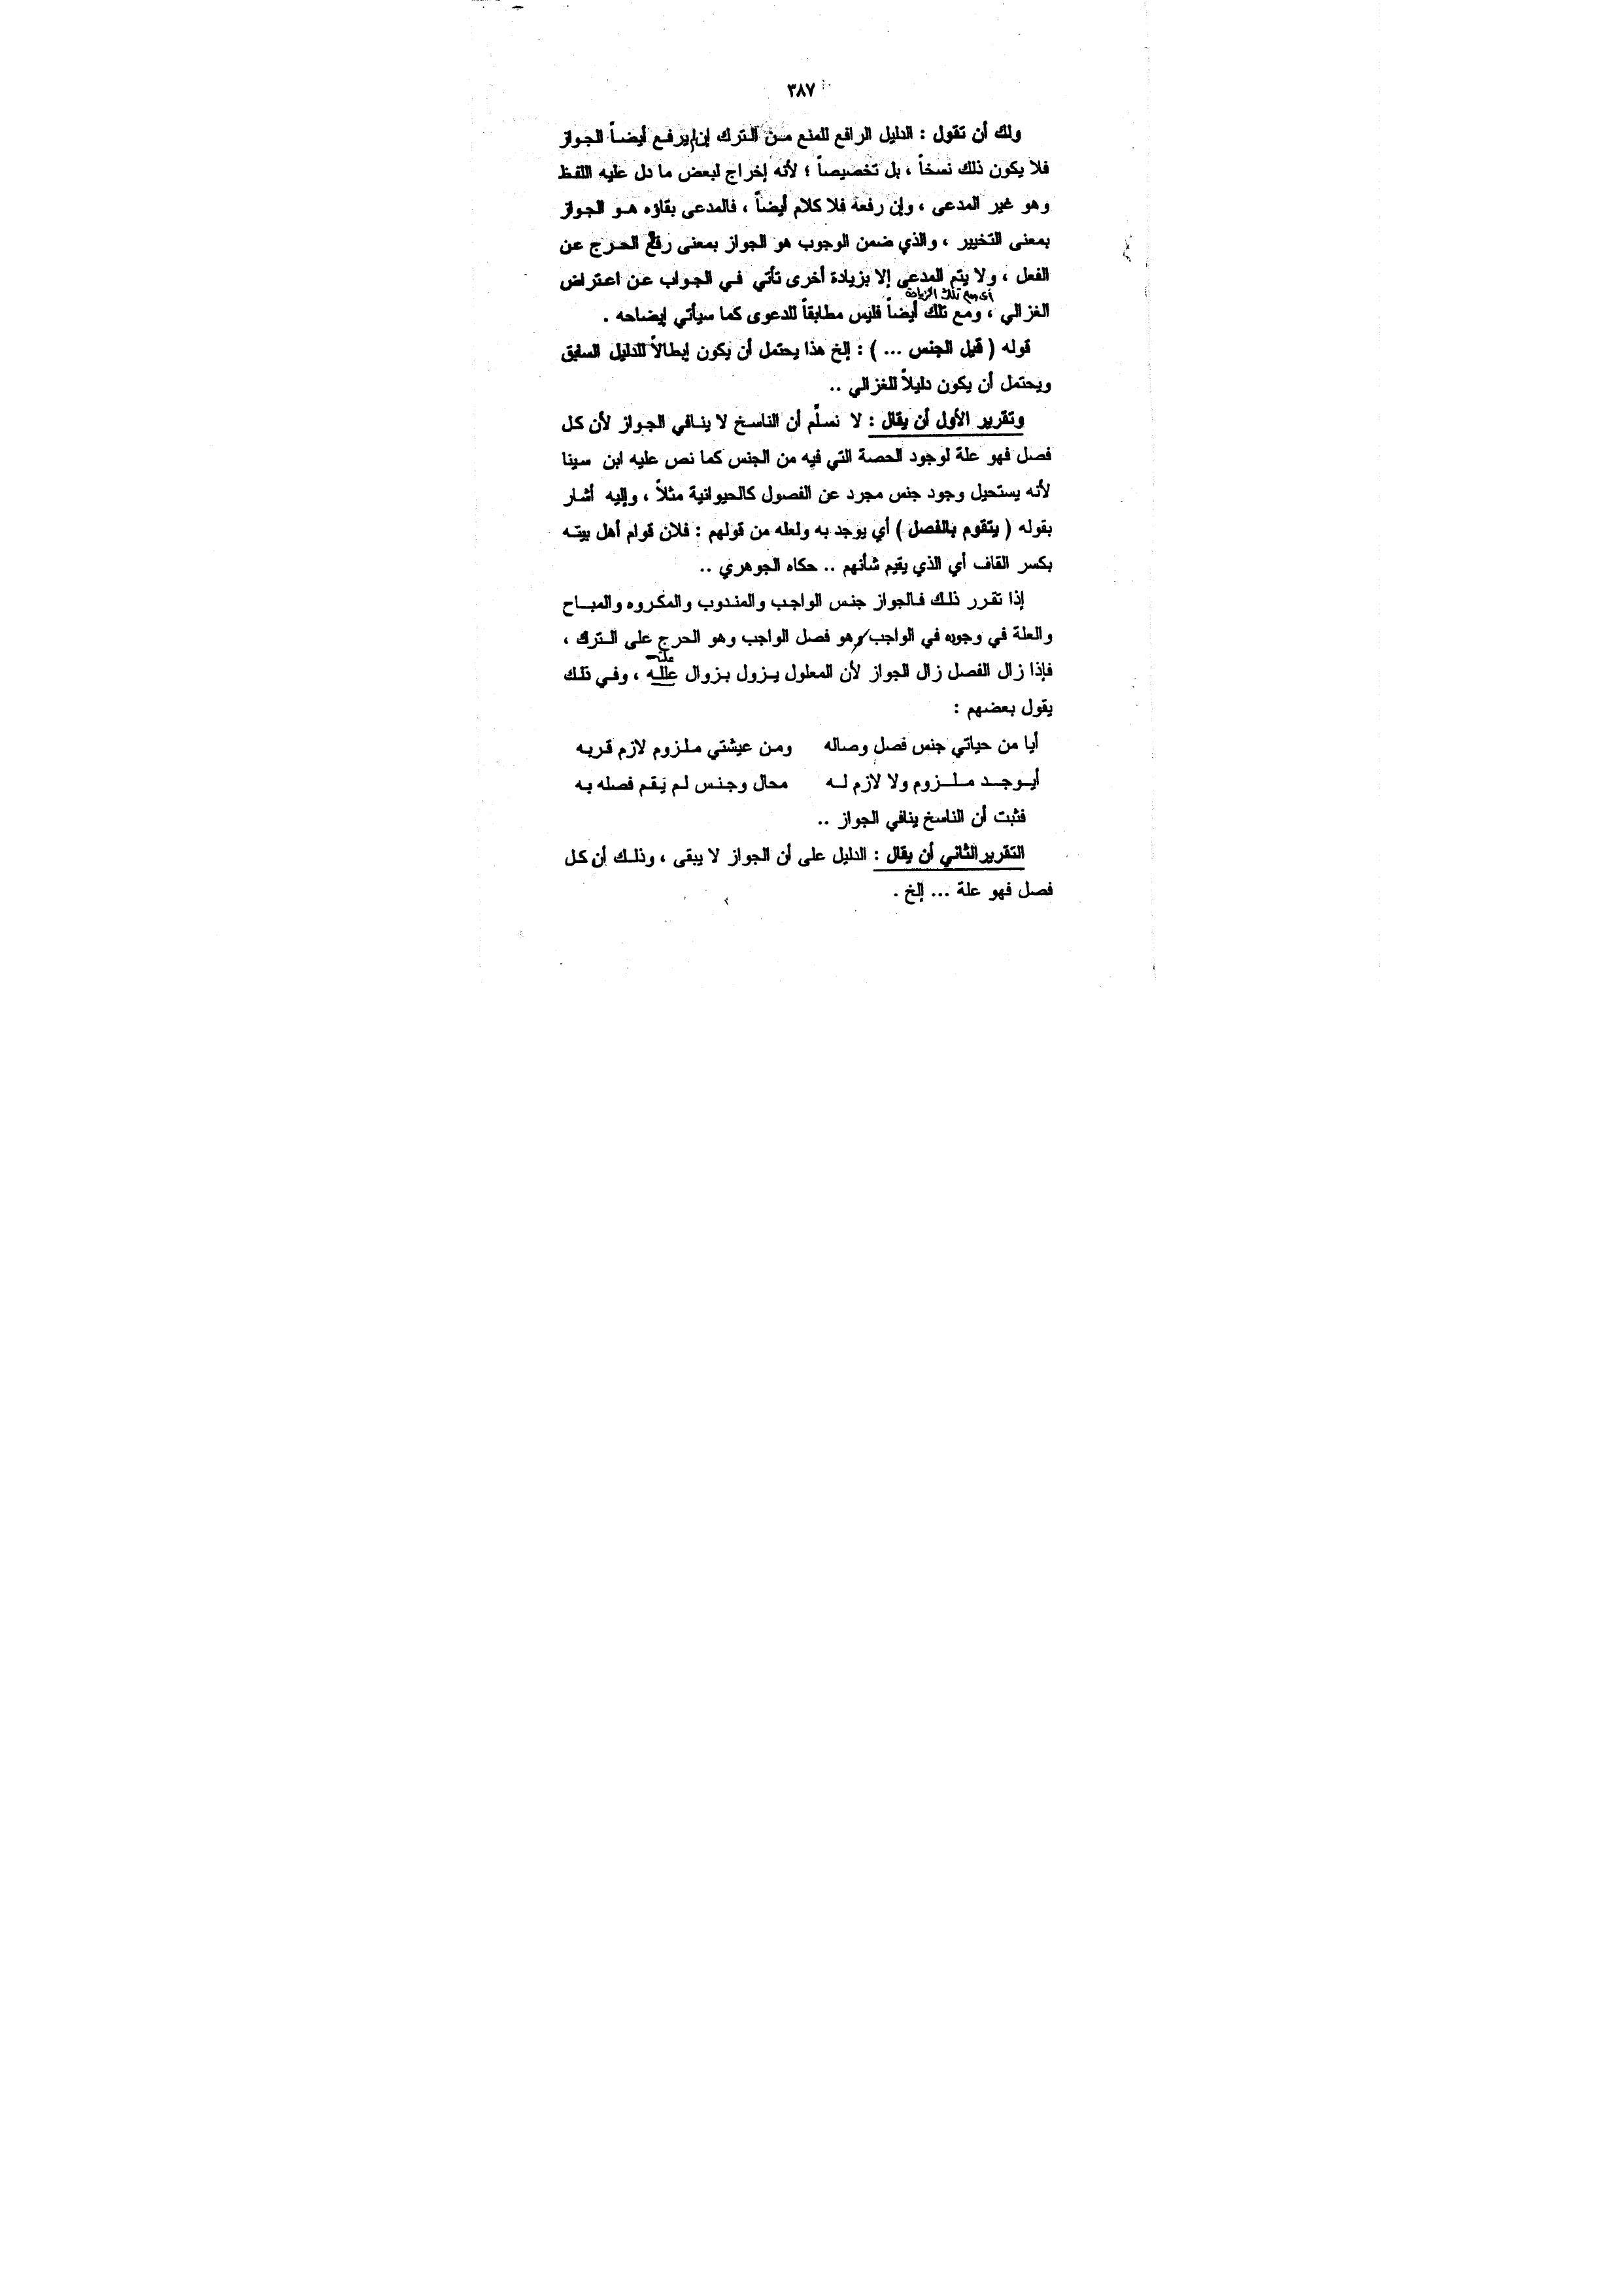 ٣٨٧
ولك أن تقول : الدليل الرافع للمنع من الترك إن لم يرفع أيضاً الجواز
فلا يكون ذلك نسخاً ، بل تخصيصاً ؛ لأنه إخراج لبعض ما دل عليه اللفظ
وهو غير المدعى ، وإن رفعه فلا كلام أيضاً ، فالمدعى بقاؤه هو الجواز
بمعنى التخيير ، والذي ضمن الوجوب هو الجواز بمعنى رفع الحرج عن
الفعل ، ولا يتم المدعى إلا بزيادة أخرى تأتي في الجواب عن اعتراض
أى ومع تلك الزيادة
الغزالي ، ومع تلك أيضاً فليس مطابقاً للدعوى كما سيأتي إيضاحه .
قوله ( قيل الجنس ... ) : إلخ هذا يحتمل أن يكون إبطالاً للدليل السابق
ويحتمل أن يكون دليلاً للغزالي ..
وتقرير الأول أن يقال : لا نسلِّم أن الناسخ لا ينافي الجواز لأن كل
فصل فهو علة لوجود الحصة التي فيه من الجنس كما نص عليه ابن سينا
لأنه يستحيل وجود جنس مجرد عن الفصول كالحيوانية مثلاً ، وإليه أشار
بقوله ( يتقوم بالفصل ) أي يوجد به ولعله من قولهم : فلان قوام أهل بيته
بكسر القاف أي الذي يقيم شأنهم .. حكاه الجوهري ..
إذا تقرر ذلك فالجواز جنس الواجب والمندوب والمكروه والمباح
والعلة في وجوده في الواجب وهو فصل الواجب وهو الحرج على الترك ،
علته
فإذا زال الفصل زال الجواز لأن المعلول يزول بزوال علله ، وفي تلك
يقول بعضهم :
أيا من حياتي جنس فصل وصاله ومن عيشتي ملزوم لازم قربه
أيوجد ملزوم ولا لازم له محال وجنس لم يَقم فصله به
فثبت أن الناسخ ينافي الجواز ..
التقرير الثاني أن يقال : الدليل على أن الجواز لا يبقى ، وذلك أن كل
فصل فهو علة ... إلخ .